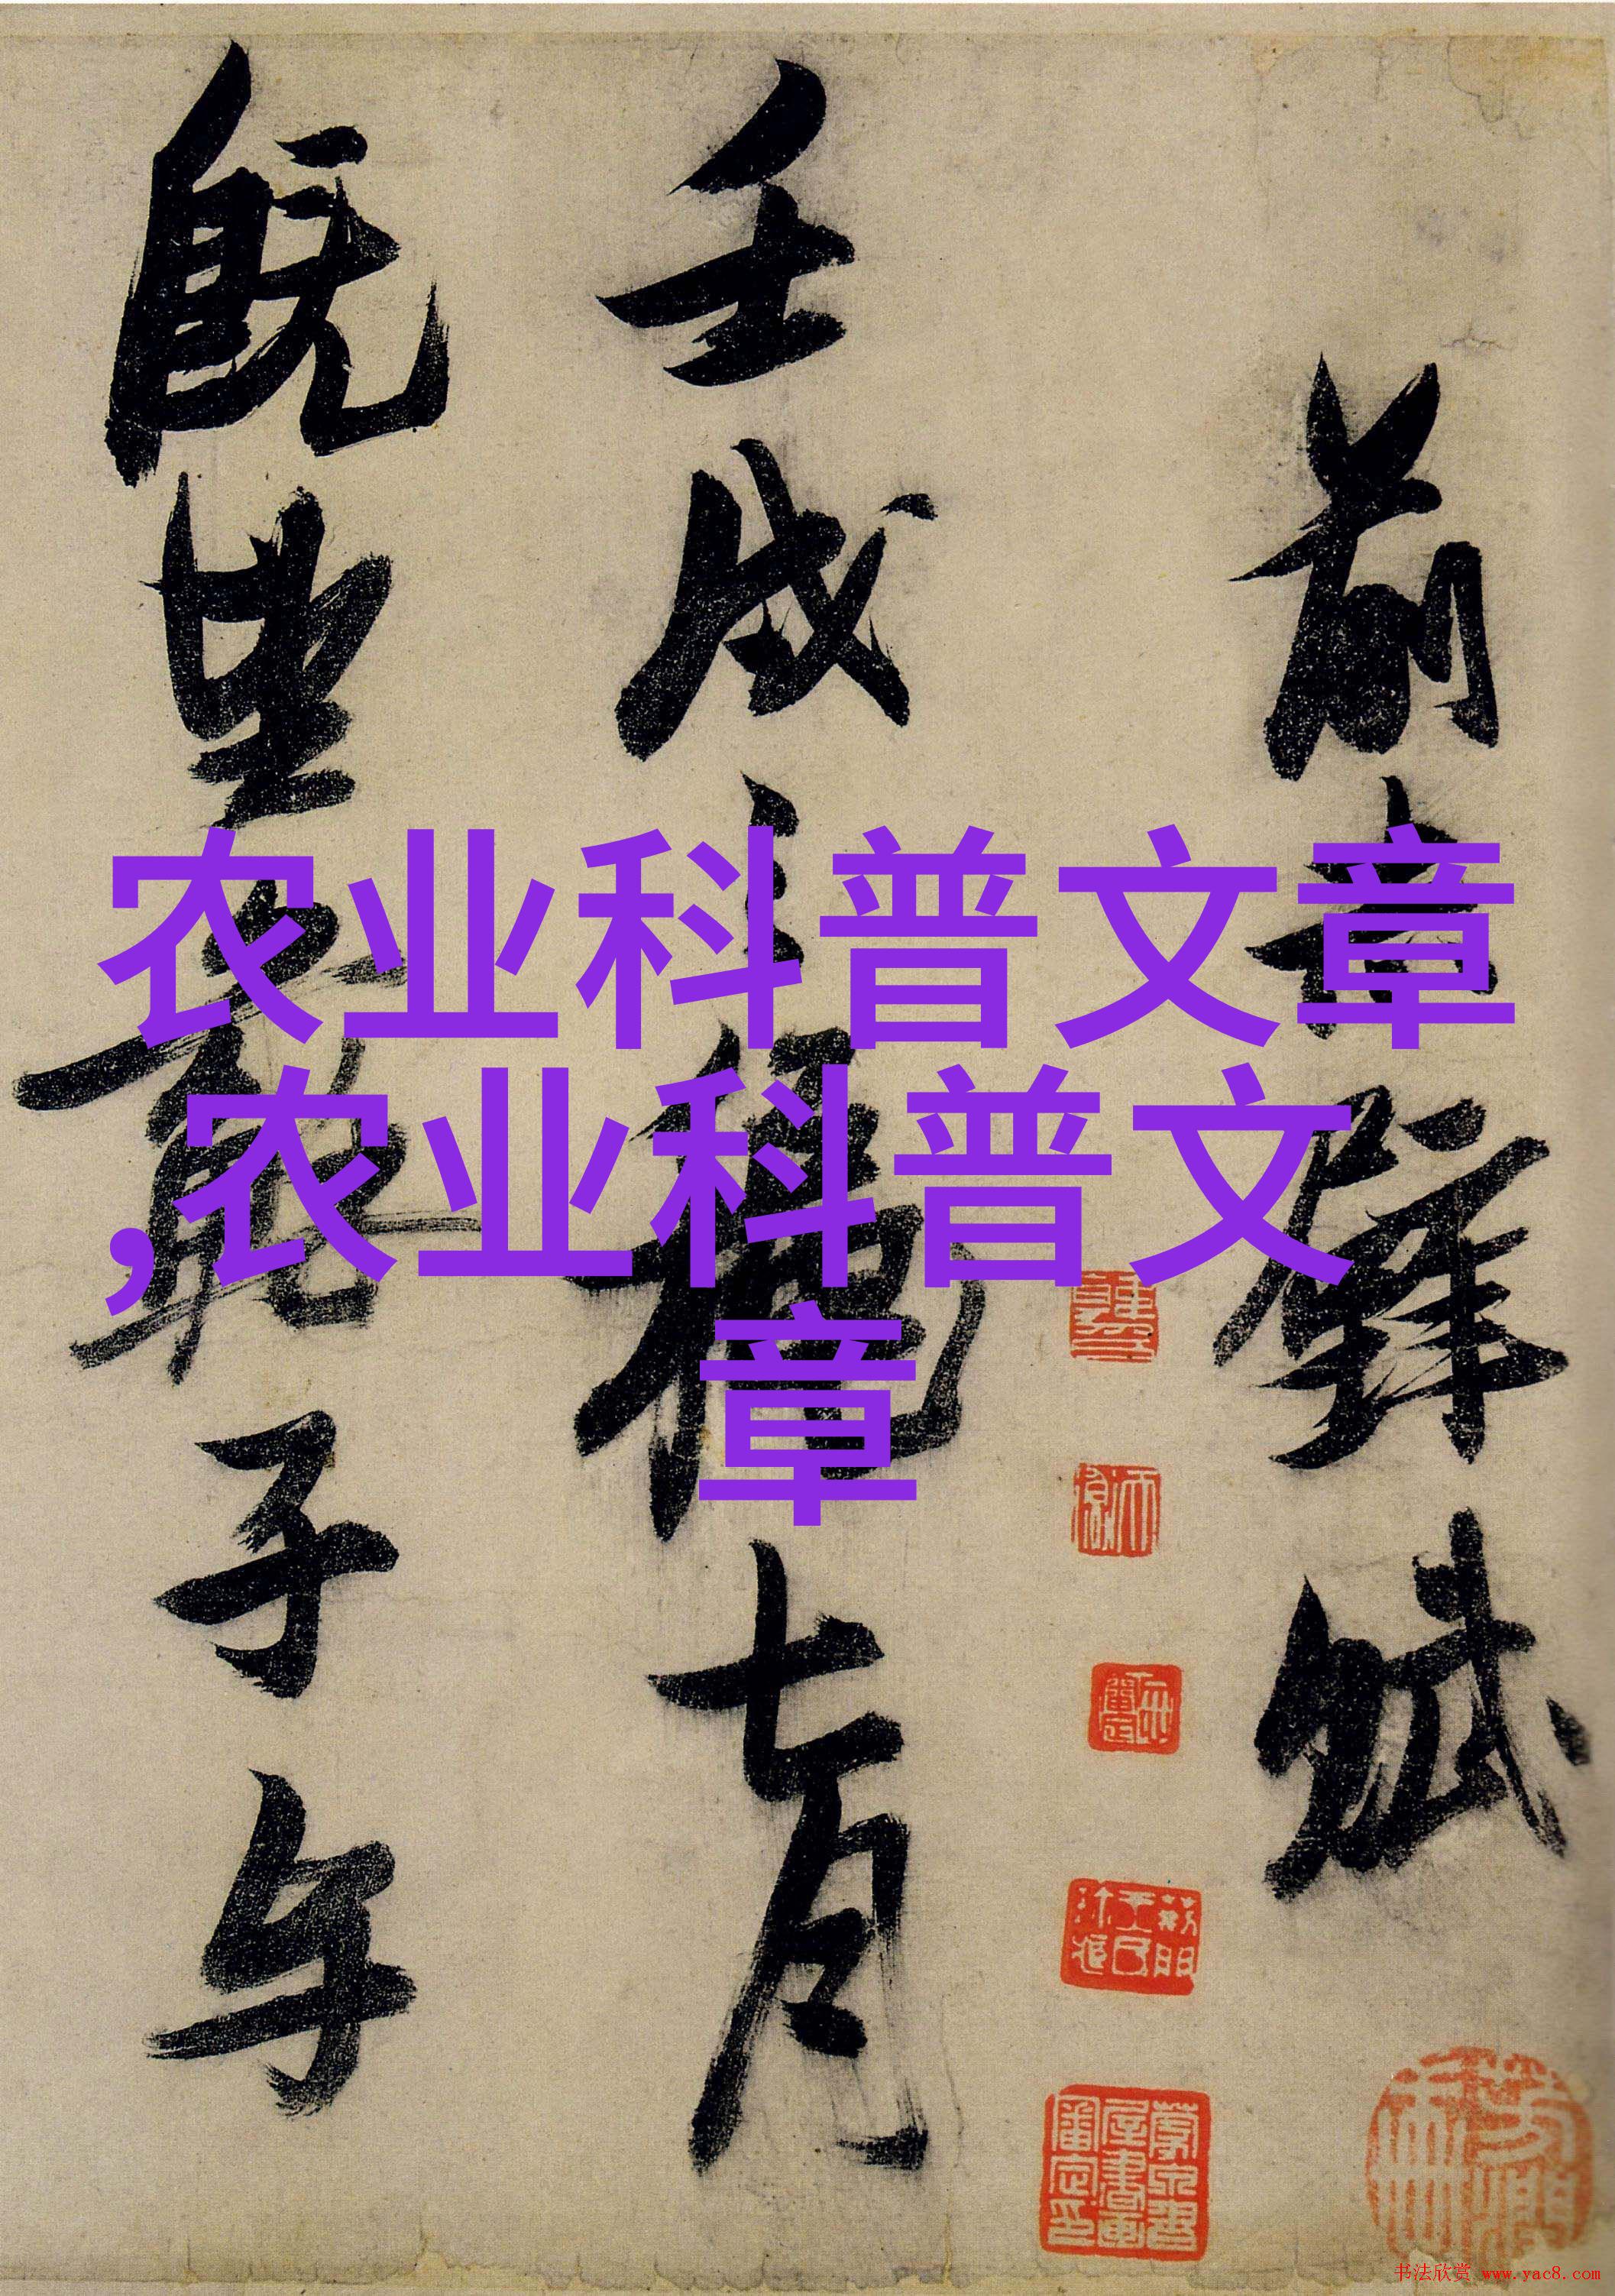 前赤壁賦
壬戌之穐七月
既望蘇子与
农业科普文章
,农业科普文
章
书法欣赏 www.yac8.com